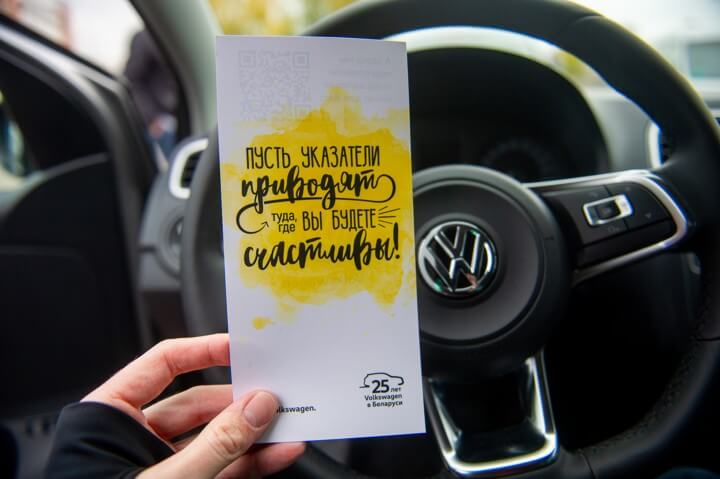 ПУСТЬ УКАЗАТЕЛИ
приводят
туда,
где ВЫ БУДЕТЕ
счастливы!
25 лет
Volkswagen
в Беларуси
lkswagen.